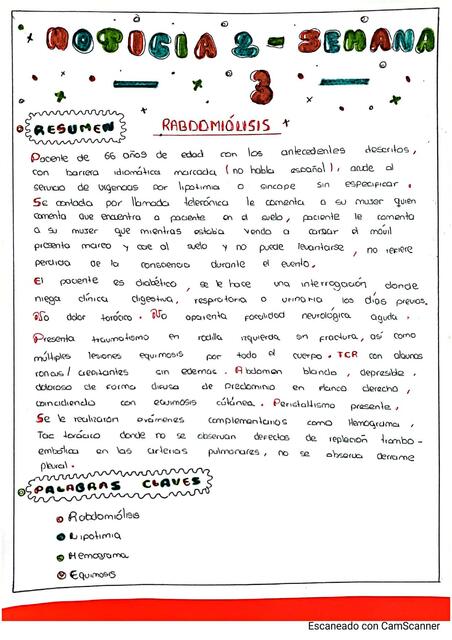 NOTICIA 2 - SEMANA
3
RESUMEN
RABDOMIÓLISIS
Paciente de 66 años de edad con los antecedentes descritos,
con barrera idiomática marcada (no habla español), acude al
servicio de urgencias por lipotimia o sincope sin especificar.
Se contacta por llamada telefónica le comenta a su mujer quien
comenta que encuentra a paciente en el suelo, paciente le comenta
a su mujer que mientras estaba yendo a cargar el móvil
presenta mareo y cae al suelo y no puede levantarse, no refiere
perdida de la consciencia durante el evento.
El paciente es diabético, se le hace una interrogación donde
niega clínica digestiva, respiratoria o urinaria los días previos.
No dolor torácico. No aparenta focalidad neurológica aguda.
Presenta traumatismo en rodilla izquierda sin fractura, así como
múltiples lesiones equimosis por todo el cuerpo. TCR con algunos
roncus/crepitantes sin edemas. Abdomen blando, depresible.
doloroso de forma difusa de predominio en flanco derecho,
coincidiendo con equimosis cutánea. Peristaltismo presente,
Se le realizaron exámenes complementarios como Hemograma,
Tac torácico donde no se observan derectos de repleción trombo-
embólica en las arterias pulmonares, no se observa derrame
pleural.
PALABRAS CLAVES
Rabdomiólisis
Lipotimia
Hemograma
Equimosis
Escaneado con CamScanner